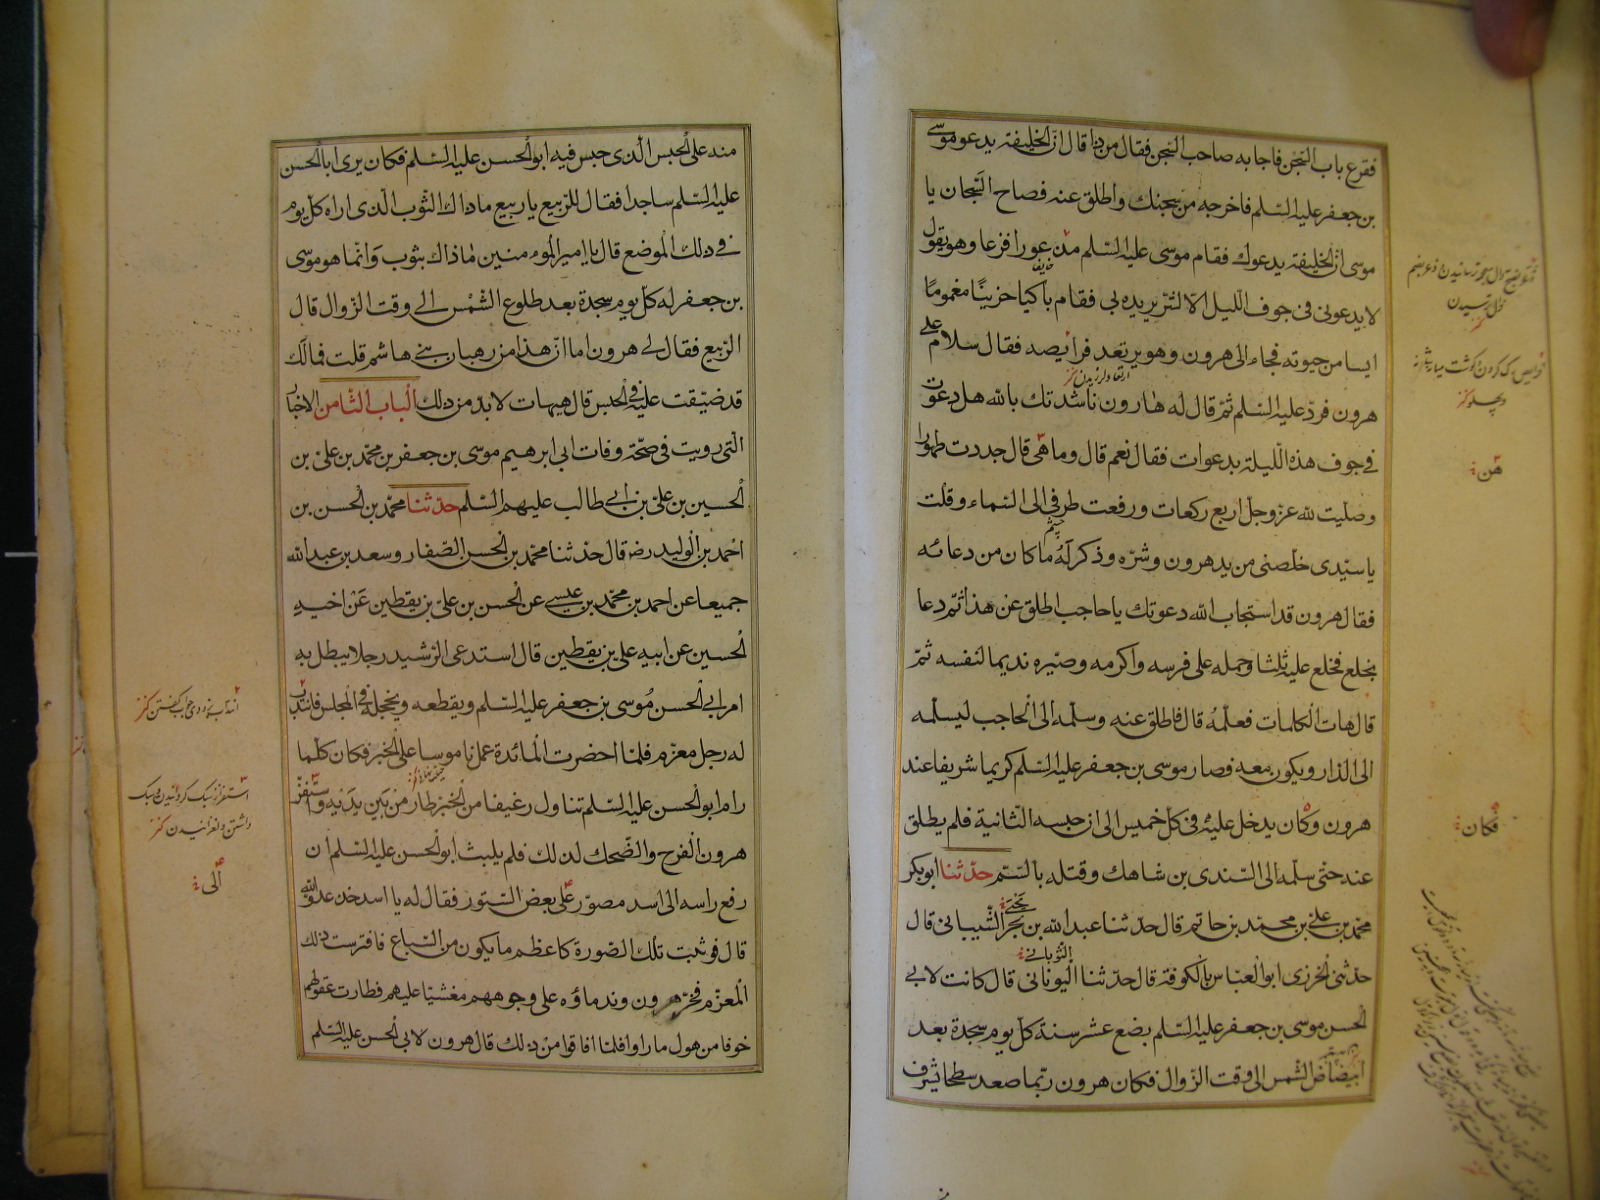 فقرع باب السجن فاجابه صاحب السجن فقال من ذا قال ان الخليفة يدعو موسى
بن جعفر عليه السلم فاخرجه من سجنك واطلق عنه فصاح السجان يا
موسى ان الخليفة يدعوك فقام موسى عليه السلم مذعورا فزعا وهو يقول
لا يدعونى فى جوف الليل الا لشر يريده بى فقام باكيا حزينا مغموما
ايسا من حيوته فجاء الى هرون وهو يرتعد فرايصه فقال سلام على
هرون فرد عليه السلم ثم قال له هارون ناشدتك بالله هل دعوت
فى جوف هذه الليلة بدعوات فقال نعم قال وما هى قال جددت طهورا
وصليت لله عز وجل اربع ركعات ورفعت طرفى الى السماء وقلت
يا سيدى خلصنى من يد هرون وشره وذكر له ما كان من دعائه
فقال هرون قد استجاب الله دعوتك يا حاجب اطلق عن هذا ثم دعا
بخلع فخلع عليه ثلثا وحمله على فرسه واكرمه وصيره نديما لنفسه ثم
قال هات الكلمات فعلمه قال فاطلق عنه وسلمه الى الحاجب ليسلمه
الى الدار ويكون معه فصار موسى بن جعفر عليه السلم كريما شريفا عند
هرون وكان يدخل عليه فى كل خميس الى ان حبسه الثانية فلم يطلق
عنه حتى سلمه الى السندى بن شاهك وقتله بالسم حدثنا ابو بكر
محمد بن على بن محمد بن حاتم قال حدثنا عبد الله بن بحر الشيبانى قال
حدثنى الخرزى ابو العباس بالكوفة قال حدثنا اليونانى قال كانت لابى
الحسن موسى بن جعفر عليه السلم بضع عشر سنة كل يوم سجدة بعد
ابيضاض الشمس الى وقت الزوال فكان هرون ربما صعد سطحا يشرف
الثوبانى
هن
فكان
منه على الحبس الذى حبس فيه ابو الحسن عليه السلم فكان يرى ابا الحسن
عليه السلم ساجدا فقال للربيع يا ربيع ما ذاك الثوب الذى اراه كل يوم
فى ذلك الموضع قال يا امير المومنين ما ذاك بثوب وانما هو موسى
بن جعفر له كل يوم سجدة بعد طلوع الشمس الى وقت الزوال قال
الربيع فقال لى هرون اما ان هذا من رهبان بنى هاشم قلت فما لك
قد ضيقت عليه فى الحبس قال هيهات لا بد من ذلك الباب الثامن الاخبار
التى رويت فى صحة وفات ابى ابرهيم موسى بن جعفر بن محمد بن على بن
الحسين بن على بن ابى طالب عليهم السلم حدثنا محمد بن الحسن بن
احمد بن الوليد رضه قال حدثنا محمد بن الحسن الصفار وسعد بن عبد الله
جميعا عن احمد بن محمد بن عيسى عن الحسن بن على بن يقطين عن اخيه
الحسين عن ابيه على بن يقطين قال استدعى الرشيد رجلا يبطل به
امر ابى الحسن موسى بن جعفر عليه السلم ويقطعه ويخجله فى المجلس فانتدب
له رجل معزم فلما احضرت المائدة عمل ناموسا على الخبز فكان كلما
رام ابو الحسن عليه السلم تناول رغيفا من الخبز طار من بين يديه واستفز
هرون الفرح والضحك لذلك فلم يلبث ابو الحسن عليه السلم ان
رفع راسه الى اسد مصور على بعض الستور فقال له يا اسد خذ عدو الله
قال فوثبت تلك الصورة كاعظم ما يكون من السباع فافترست ذلك
المعزم فخر هرون وندماؤه على وجوههم مغشيا عليهم فطارت عقولهم
خوفا من هول ما راوا فلما افاقوا من ذلك قال هرون لابى الحسن عليه السلم
الى